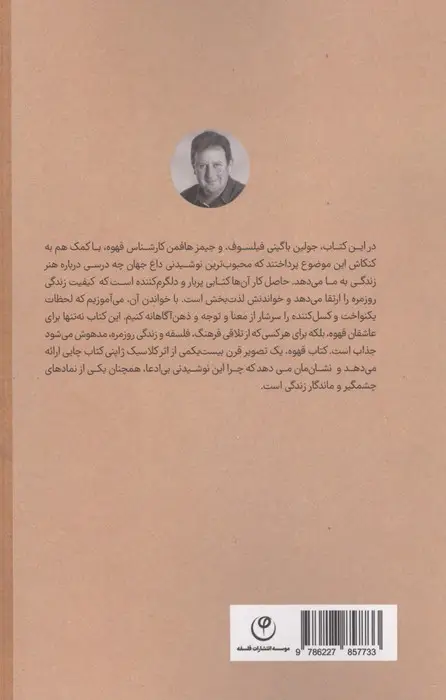 در این کتاب، جولین باگینی فیلسوف، و جیمز هافمن کارشناس قهوه، با کمک هم به
کنکاش این موضوع پرداختند که محبوب‌ترین نوشیدنی داغ جهان چه درسی درباره هنر
زندگی به ما می‌دهد. حاصل کار آن‌ها کتابی پربار و دلگرم‌کننده است که کیفیت زندگی
روزمره را ارتقا می‌دهد و خواندنش لذت‌بخش است. با خواندن آن، می‌آموزیم که لحظات
یکنواخت و کسل‌کننده را سرشار از معنا و توجه و ذهن‌آگاهانه کنیم. این کتاب نه‌تنها برای
عاشقان قهوه، بلکه برای هرکسی که از تلاقی فرهنگ، فلسفه و زندگی روزمره، مدهوش می‌شود
جذاب است. کتاب قهوه، یک تصویر قرن بیست‌یکمی از اثر کلاسیک ژاپنی کتاب چایی ارائه
می‌دهد و نشان‌مان می دهد که چرا این نوشیدنی بی‌ادعا، همچنان یکی از نمادهای
چشمگیر و ماندگار زندگی است.
موسسه انتشارات فلسفه
9 786227 857733